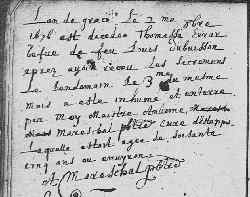 L'an de grace le 2 me xbre
1676 est decedee Thomasse Evrar
vefue de feu Louis dubuisson
apres avoir receu les sacremens
Le Lendemain le 3me du mesme
mois a este inhumé et enterre
par moy Maistre Antoine
Mareschal pbtre Curé d'étapp
Laquelle estoit agee de soixante
cinq ans ou environ
A Mareschal pbtre